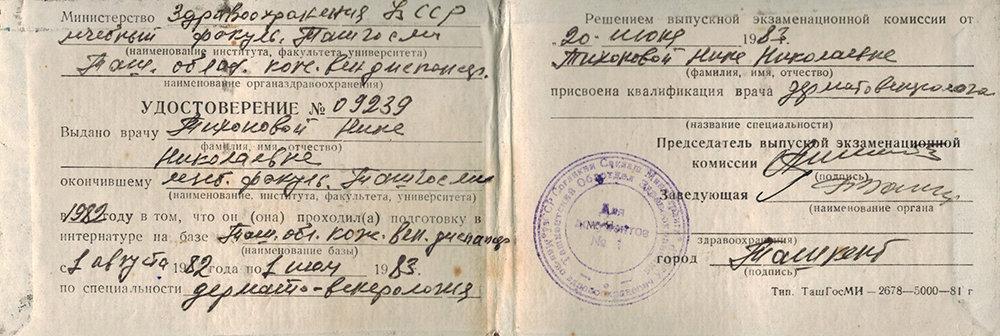 Министерство Здравоохранения УзССР
лечебный факульт. Ташгосми
(наименование института, факультета университета)
Таш. облас. кож. вен. диспансер.
наименование органздравоохранения)
УДОСТОВЕРЕНИЕ № 09239
Выдано врачу Тихоновой Нине
фамилия, имя, отчество)
Николаевне
окончившему леч. факульт. Ташгосми
(наименование, института, факультета, университета)
в 1982 году в том, что он (она) проходил(а) подготовку в
интернатуре на базе Таш. обл. кож. вен. диспансер
(наименование базы)
с 1 августа 1982 года по 1 июля 1983.
по специальности дермато-венерология
Решением выпускной экзаменационной комиссии от
„20“ июня 1983.
Тихоновой Нине Николаевне
(фамилия, имя, отчество)
присвоена квалификация врача дерматовенеролога
(название специальности)
Председатель выпускной экзаменационной
комиссии
(подпись)
Заведующая
(наименование органа
здравоохранения)
город Ташкент
(подпись)
Для
документов
№ 1
Тип. ТашГосМИ—2678—5000—81 г